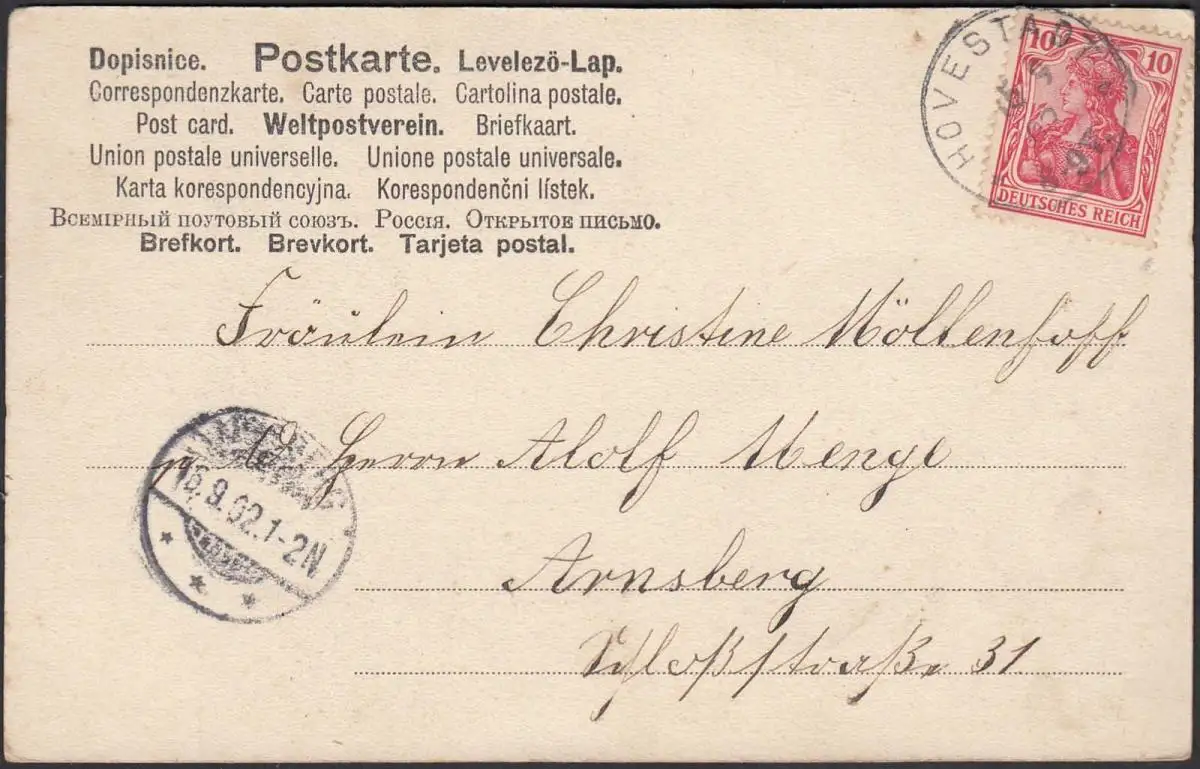 Dopisnice. Postkarte. Levelezö-Lap.
Correspondenzkarte. Carte postale. Cartolina postale.
Post card. Weltpostverein. Briefkaart.
Union postale universelle. Unione postale universale.
Karta korespondencyjna. Korespondenčni lístek.
Всемірный поутовый союзъ. Россія. Открытое письмо.
Brefkort. Brevkort. Tarjeta postal.
HOVESTADT
10 10
DEUTSCHES REICH
Fräulein Christine Möllenhoff
Herrn Adolf Menge
.9.02.1-2N
Arnsberg
Schloßstraße 31